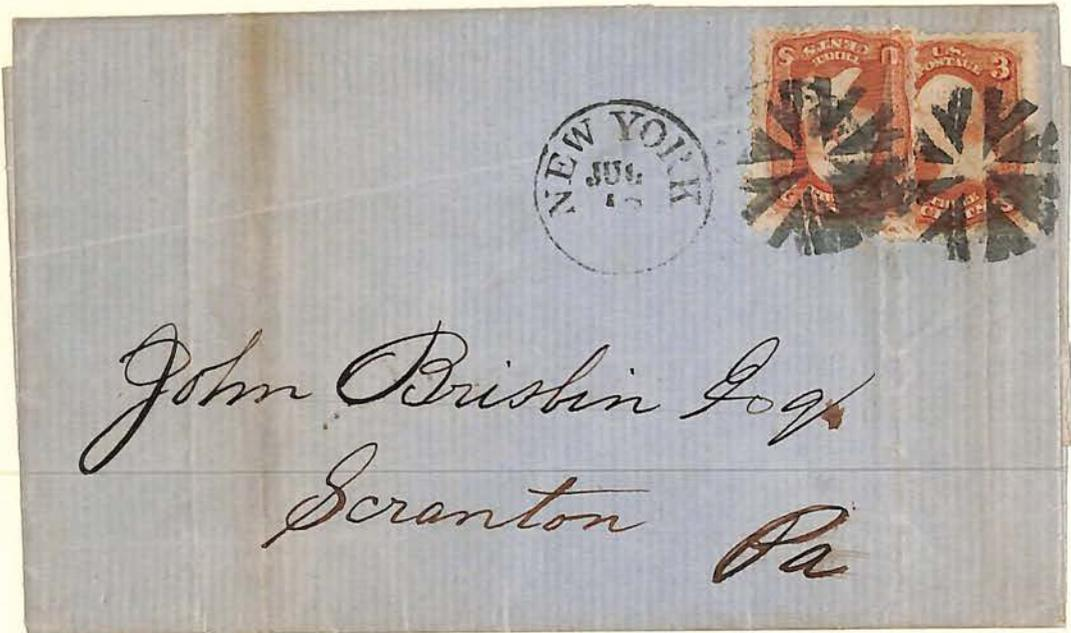 NEW YORK
JUL
U.S. POSTAGE
3
THREE
CENTS
U S
THREE
CENTS
John Brisbin Esq.
Scranton
Pa